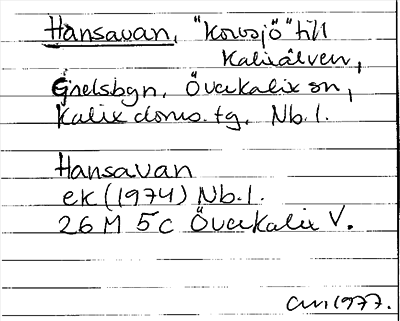 Hansavan, "Korvsjö" till
Kalixälven,
Gnelsbyn. Överkalix sn,
Kalix doms.tg. Nb.l.
Hansavan
ek (1974) Nb.l.
26 M 5c Överkalix V.
1977.